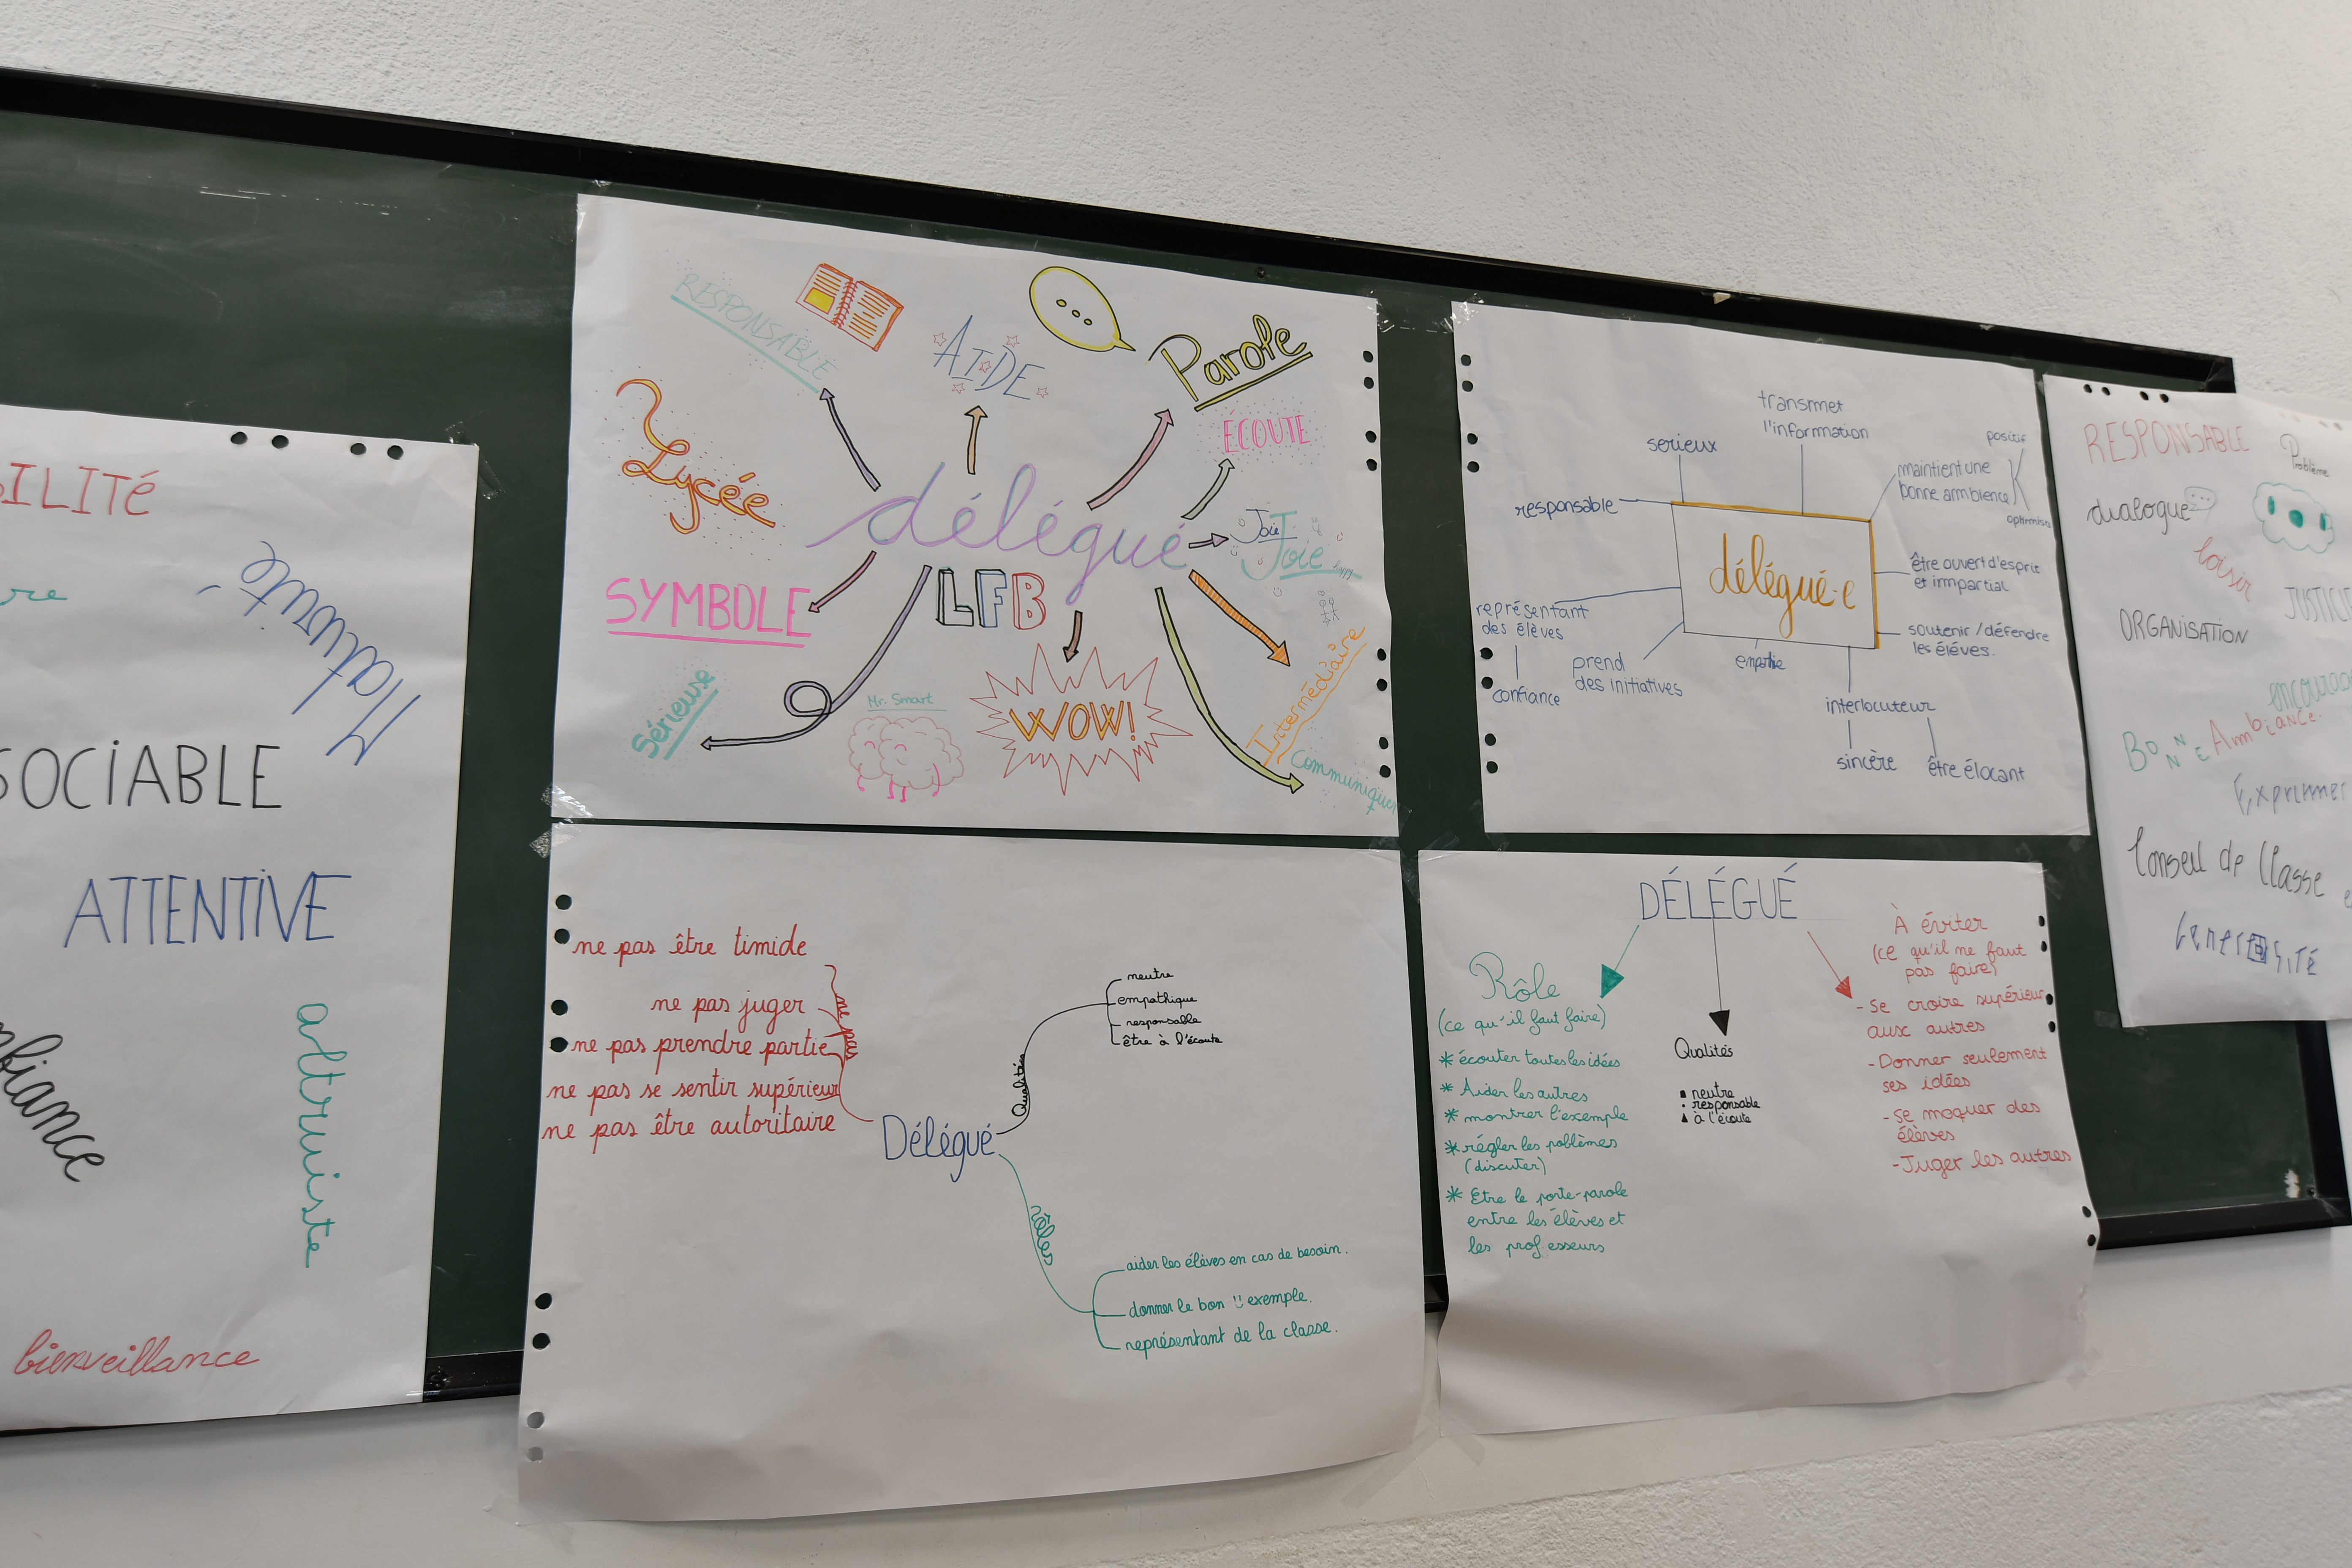 ILITÉ
re
Maturité
SOCIABLE
ATTENTIVE
altruiste
fiance
bienveillance
RESPONSABLE
AIDE
Parole
ÉCOUTE
Lycée
délégué
Joie
Joie
LFB
SYMBOLE
Sérieuse
Mr. Smart
WOW!
Intermédiaire
Communiquer
transmet
l'information
serieux
positif
maintient une
bonne ambience
responsable
délégué·e
être ouvert d'esprit
et impartial
représentant
des élèves
soutenir/défendre
les élèves.
prend
des initiatives
confiance
interlocuteur
sincère
être élocant
RESPONSABLE
Problème
dialogue
loisir
JUSTICI
ORGANISATION
encourag
BONNE Ambiance.
Exprimer
Conseil de Classe
ne pas être timide
ne pas juger
ne pas prendre partie
ne pas se sentir supérieur
ne pas être autoritaire
ne pas
Délégué
Qualités
neutre
empathique
responsable
être à l'écoute
rôles
aider les élèves en cas de besoin.
donner le bon exemple.
représentant de la classe.
DÉLÉGUÉ
Rôle
(ce qu'il faut faire)
* écouter toutes les idées
* Aider les autres
* montrer l'exemple
* régler les poblèmes
(discuter)
* Etre le porte-parole
entre les élèves et
les professeurs
Qualités
neutre
responsable
à l'écoute
À éviter
(ce qu'il ne faut
pas faire)
- Se croire supérieur
aux autres
- Donner seulement
ses idées
- Se moquer des
élèves
- Juger les autres